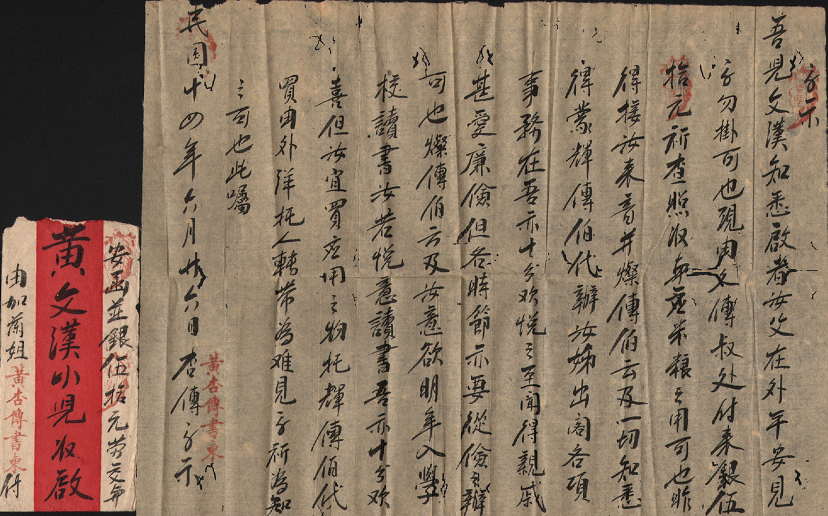 字示
吾兒文漢知悉啟者汝父在外平安見
字勿掛可也現由文傳叔处付来銀伍
拾元祈查照收与應米粮之用可也昨
得接汝来音并燦傳伯云及一切知悉
得蒙輝傳伯代辦汝姊出閣各項
事務在吾亦十分欢悦之至聞得親戚
甚愛廉儉但各時節亦要從儉而辦
可也燦傳伯云及汝意欲明年入學
校讀書汝若悦意讀書吾亦十分欢
喜但汝宜買应用之物托輝傳伯代
買由外洋托人轉带為难見字祈為知
之可也此囑
民国十四年六月廿六日 杏傳字示
黃杏傳書柬
安函並銀伍拾元劳交
黃文漢小兒收啟
由加
姐
黃杏傳書柬
付